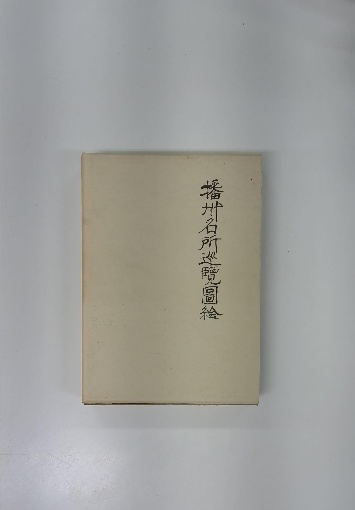 播州名所巡覧圖絵